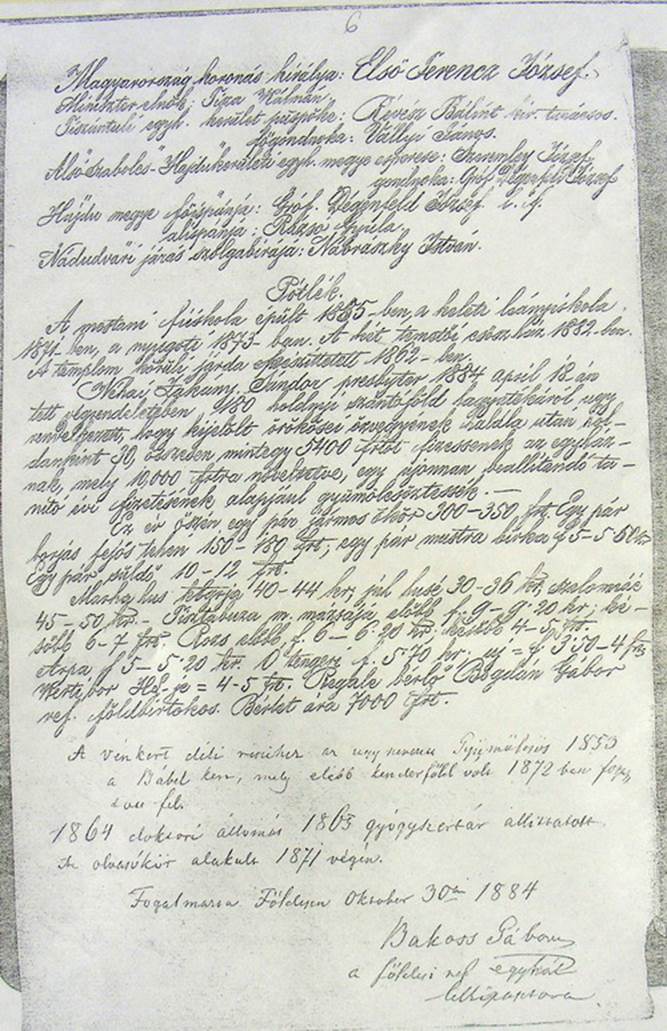 6
Magyarország koronás királya: Első Ferencz József.
Miniszter elnök: Tisza Kálmán
Tiszántuli egyh. kerület püspöke: Révész Bálint kir. tanácsos.
főgondnoka: Vállyi János.
Alsószabolcs-Hajdukerületi egyh. megye esperese: Szeremley József
gondnoka: Gróf Degenfeld József
Hajdu megye főispánja: Gróf. Degenfeld József i. f.
alispánja: Rásó Gyula.
Nádudvari járás szolgabirája: Nábráczky István.
Pótlék.
A mostani fiúiskola épült 1865-ben, a keleti leányiskola
1871-ben, a nyugoti 1873-ban. A két temetői csősz ház 1882-ben.
A templom körüli járda készíttetett 1862-ben.
Néhai Zákány Sándor presbyter 1884 april 18 án
tett végrendeletében 9/180 holdnyi szántóföld hagyatékáról ugy
rendelkezett, hogy kijelölt örökösei özvegyének halála után hol-
danként 30, összesen mintegy 5400 frtot fizessenek az egyház-
nak, mely 10,000 frtra növeltetve, egy ujonnan beállitandó ta-
nitó évi fizetésének alapjául gyümölcsöztessék. —
Ez év őszén egy pár jármos ökör 300-350 frt. Egy pár
borjas fejős tehén 150-180 frt; egy pár mustra birka f 5-5.60 kr
Egy pár süldő 10-12 frt.
Marha hus kilgrja 40-44 kr, juh husé 30-36 kr, szalonnáé
45-50 kr. - Tisztabuza m. mázsája előbb f. 9-9.20 kr; ké-
sőbb 6-7 frt Rozs előbb f. 6-6.20 kr. később 4-5 frt.
Árpa f 5-5.20 kr. Ó tengeri f. 5.70 kr. uj = f 3.50-4 frt
Kertibor Hl-je = 4-5 frt. Regále bérlő Bogdán Gábor
ref. földbirtokos. Bérlet ára 7000 frt.
A vénkert déli részihez az ugy nevezett Gyümölcsös 1853
a Bábel ken, mely előbb kenderföld volt 1872 ben foga
1864 doktori állomás 1863 gyógyszertár állittatott
Az olvasókör alakult 1871 végén.
Fogalmazva Földesen Oktober 30án 1884
Bakoss Gábor
a földesi ref egyház
lelkipásztora